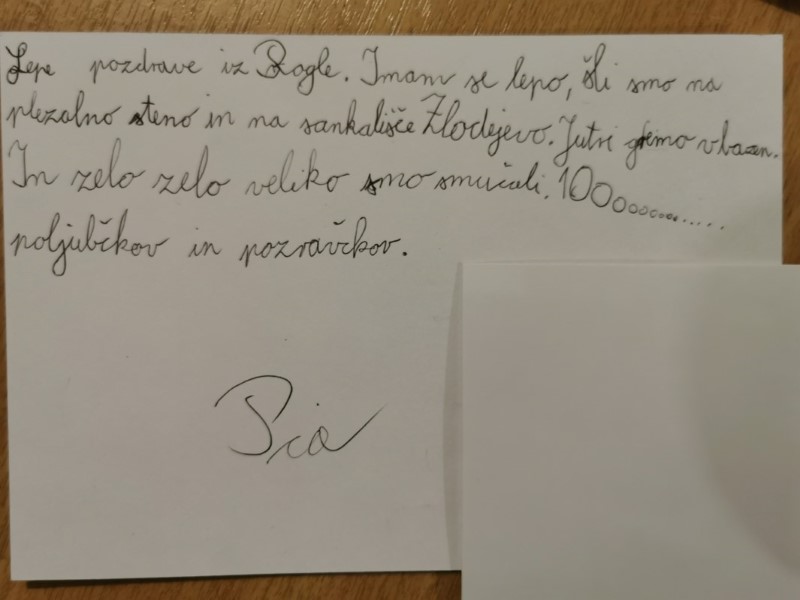 Lepe pozdrave iz Rogle. Imam se lepo, šli smo na
plezalno steno in na sankališče Zlodejevo. Jutri gremo v bazen.
In zelo zelo veliko smo smučali. 100000000.......
poljubčkov in pozravčkov.
Pia